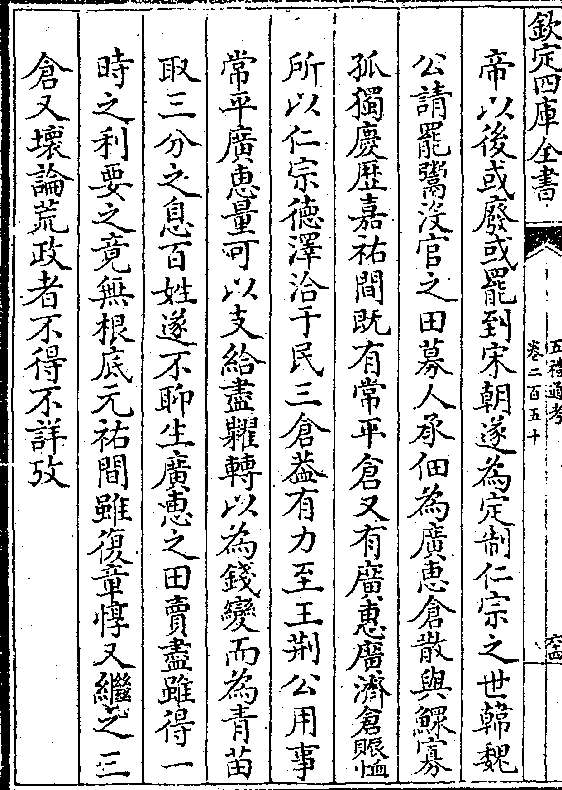 欽定四庫全書
五禮通考
卷二百五十
六四
帝以後或廢或罷到宋朝遂為定制仁宗之世韓魏
公請罷鬻沒官之田募人承佃為廣恵倉散與鰥寡
孤獨慶歴嘉祐間既有常平倉又有廣惠廣濟倉賑恤
所以仁宗德澤洽于民三倉葢有力至王荆公用事
常平廣恵量可以支給盡糶轉以為錢變而為青苗
取三分之息百姓遂不聊生廣恵之田賣盡雖得一
時之利要之竟無根底元祐間雖復章惇又繼之三
倉又壞論荒政者不得不詳攷